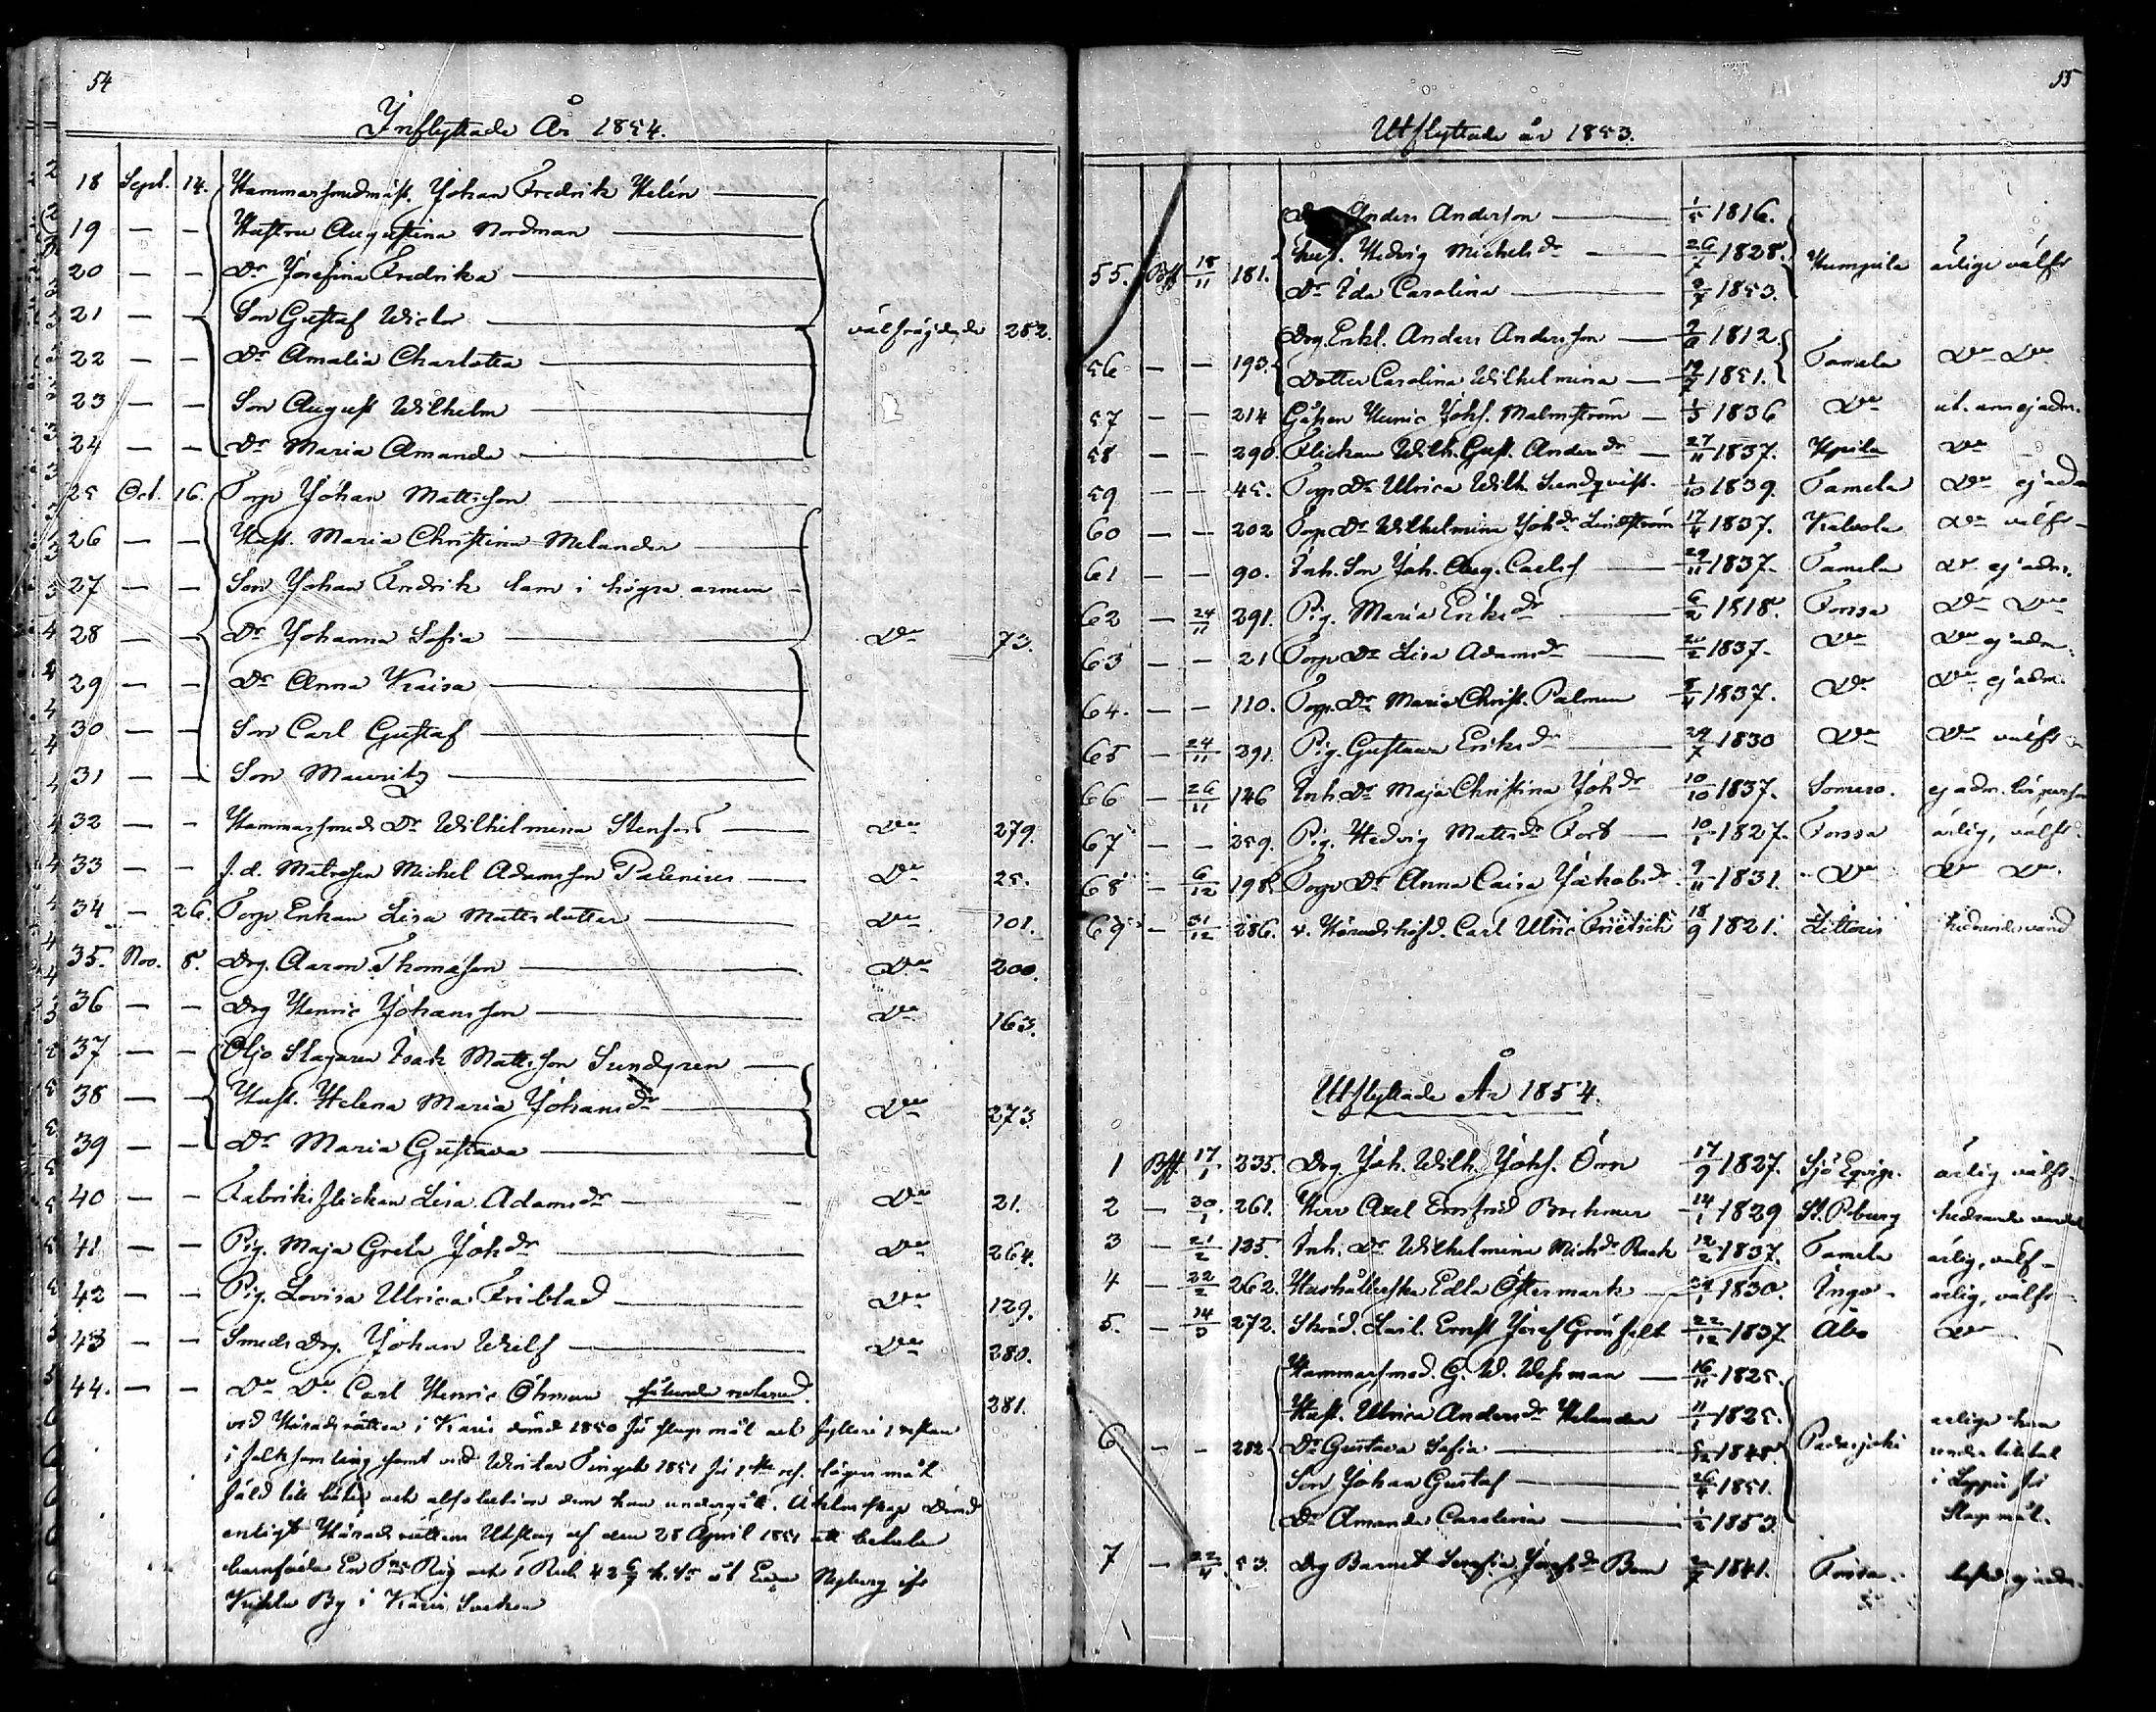 54
Inflyttade År 1854.
18 Sept. 14. Hammarsmedmäst. Johan Fredrik Helén
19 — — Hustru Augustina Nordman
20 — — Dr Josefina Fredrika
21 — — Son Gustaf Victor välfräjdade 282.
22 — — Dr Amalia Charlotta
23 — — Son August Wilhelm
24 — — Dr Maria Amanda
25 Oct. 16. Torp Johan Mattsson
26 — — Hust. Maria Christina Melander
27 — — Son Johan Fredrik lam i högra armen
28 — — Dr Johanna Sofia Do 73.
29 — — Dr Anna Kaisa
30 — — Son Carl Gustaf
31 — — Son Mauritz
32 — — Hammarsmeds Dr Wilhelmina Stenfors Do 279.
33 — — f. d. Matrosen Michel Adamsson Palenius Do 25.
34 — 26. Torp. Enkan Lisa Mattsdotter Do 101.
35. Nov. 8. Drg. Aaron Thomasson Do 200.
36 — — Drg Henric Johansson Do 163.
37 — — Oljo Slagaren Isak Mattsson Sundgren
38 — — Hust. Helena Maria Johansdr Do 273.
39 — — Dr Maria Gustava
40 — — Fabriksflickan Lisa Adamsdr Do 21.
41 — — Pig. Maja Greta Johdr Do 264.
42 — — Pig. Lovisa Ulrica Friblad Do 129.
43 — — Smeds Drg. Johan Wilf Do 280.
44. — — Do Do Carl Henric Öhman sålunda noterad 281.
vid Häradsrätten i Karis dömd 1850 för slagsmål och fylleri
i folksamling samt vid Winter Tinget 1851 för
fäld till böter och absolution dem han undergått.
enligt Häradsrättens Utslag af den 28 April 1851 att betala
barnföda En Rig och 1 Rub 42 6/7 åt Eva Nyberg ifr
By i Karis Socken
55
Utflyttade år 1853.
Anders Anderson 1/5 1816.
Hust. Hedvig Michelsdr 26/7 1828.
55. Bff 18/11 181. Humpila ärlige välfr
Dr Ida Carolina 2/7 1853.
Drg. Enkl. Anders Andersson 2/6 1812.
56 — — 193. Tamela Do Do
Dotter Carolina Wilhelmina 1851.
57 — — 214 Gåssen Henric Johs. Malmström 1/3 1836 Do ej adm.
58 — — 290. Flickan Wilh. Gust. Andersdr 27/11 1837. Ypila Do
59 — — 45. Torp Dr Ulrica Wilh. Sundqvist. 1/10 1839. Tamela Do ej adm
60 — — 202 Torp. Dr Wilhelmina Johdr Lindström 17/4 1837. Kalvola Do välfr
61 — — 90. Inh. Son Joh. Aug. Carlss 29/11 1837. Tamela Do ej adm.
62 — 24/11 291. Pig. Maria Eriksdr 6/2 1818. Forssa Do Do
63 — — 21 Torp Dr Lisa Adamsdr 20/2 1837. Do Do ej adm.
64. — — 110. Torp. Dr Maria Christ. Palmen 8/4 1837. Do Do ej adm.
65 — 24/11 291. Pig. Gustava Eriksdr 29/7 1830 Do Do välfr
66 — 26/11 146 Inh. Dr Maja Christina Johdr 10/10 1837. Somero. ej adm.
67 — — 259. Pig. Hedvig Mattsdr Fors 10/1 1827. Forssa ärlig, välfr.
68 — 6/12 198. Torp Dr Anna Caisa Jakobsdr 9/11 1831. Do Do Do.
69 — 31/12 286. v. Häradshöfd. Carl Ulric Frietsch 18/9 1821. Littois hedrande vand
Utflyttade År 1854.
1 Bff. 17/1 235. Drg. Joh. Wilh. Johs. Örn 17/9 1827. Sjö Eqvipe. ärlig välfr.
2 — 30/1. 261. Herr Axel Ernfrid Brehmer 14/1 1829 St. Pburg hedrande vandel
3 — 21/2 135. Inh. Dr Wilhelmina Michsdr Raak 12/2 1837. Tamela ärlig, välf
4 — 22/2 262. Hushållerska Edla Östermark 29/1 1830. Ingo ärlig, välfr
5. — 14/3 272. Skräd. Lärl. Ernst Josef Grönfelt 22/12 1837 Åbo Do
Hammarsmed. G. W. Wesman 16/11 1825.
Hust. Ulrica Andersdr Helander 11/1 1825. ärlige han
6 — — 282 Dr Gustava Sofia 5/12 1848. Padasjoki under tilltal
Son Johan Gustaf 26/4 1851. i Loppis för
Dr Amanda Carolina 1/2 1853. Slagsmål.
7 — 22/4 53. Drg Barnet Serafia Josefsdr Bom 2/7 1841. Forssa. ej adm.